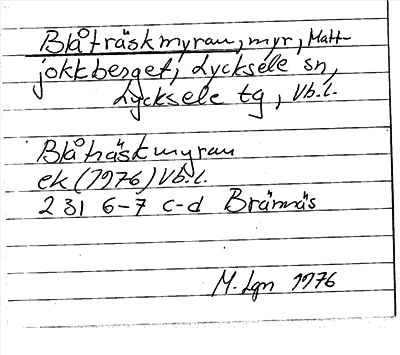 Blåträskmyran, myr, Matt-
jokkberget, Lycksele sn,
Lycksele tg, Vb.l.
Blåträskmyran
ek (1976) Vb.l.
231 6-7 c-d Brännäs
M. Lgn 1976